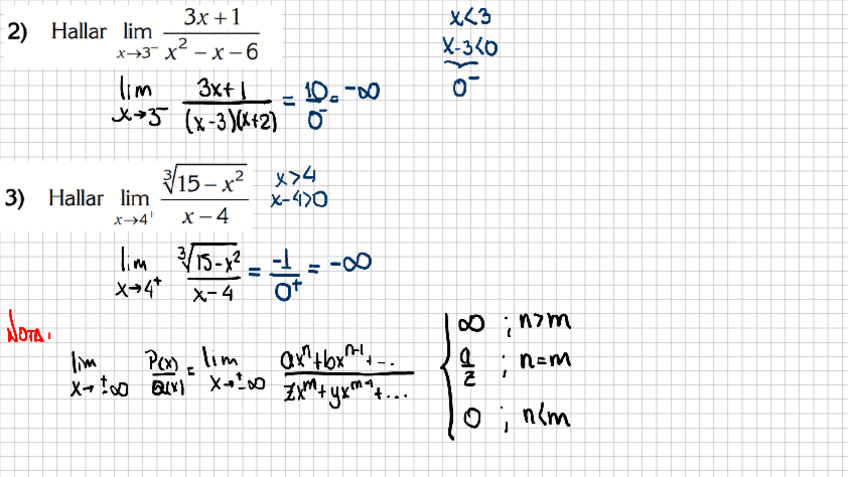 2) Hallar lim x→3⁻ (3x + 1)/(x² − x − 6)
x<3
x-3<0
0⁻
lim x→3⁻ (3x+1)/((x-3)(x+2)) = 10/0⁻ = -∞
3) Hallar lim x→4⁺ ∛(15 − x²)/(x − 4)
x>4
x-4>0
lim x→4⁺ ∛(15-x²)/(x-4) = -1/0⁺ = -∞
NOTA:
lim x→±∞ P(x)/Q(x) = lim x→±∞ (axⁿ+bxⁿ⁻¹+...)/(zxᵐ+yxᵐ⁻¹+...)
∞ ; n>m
a/z ; n=m
0 ; n<m